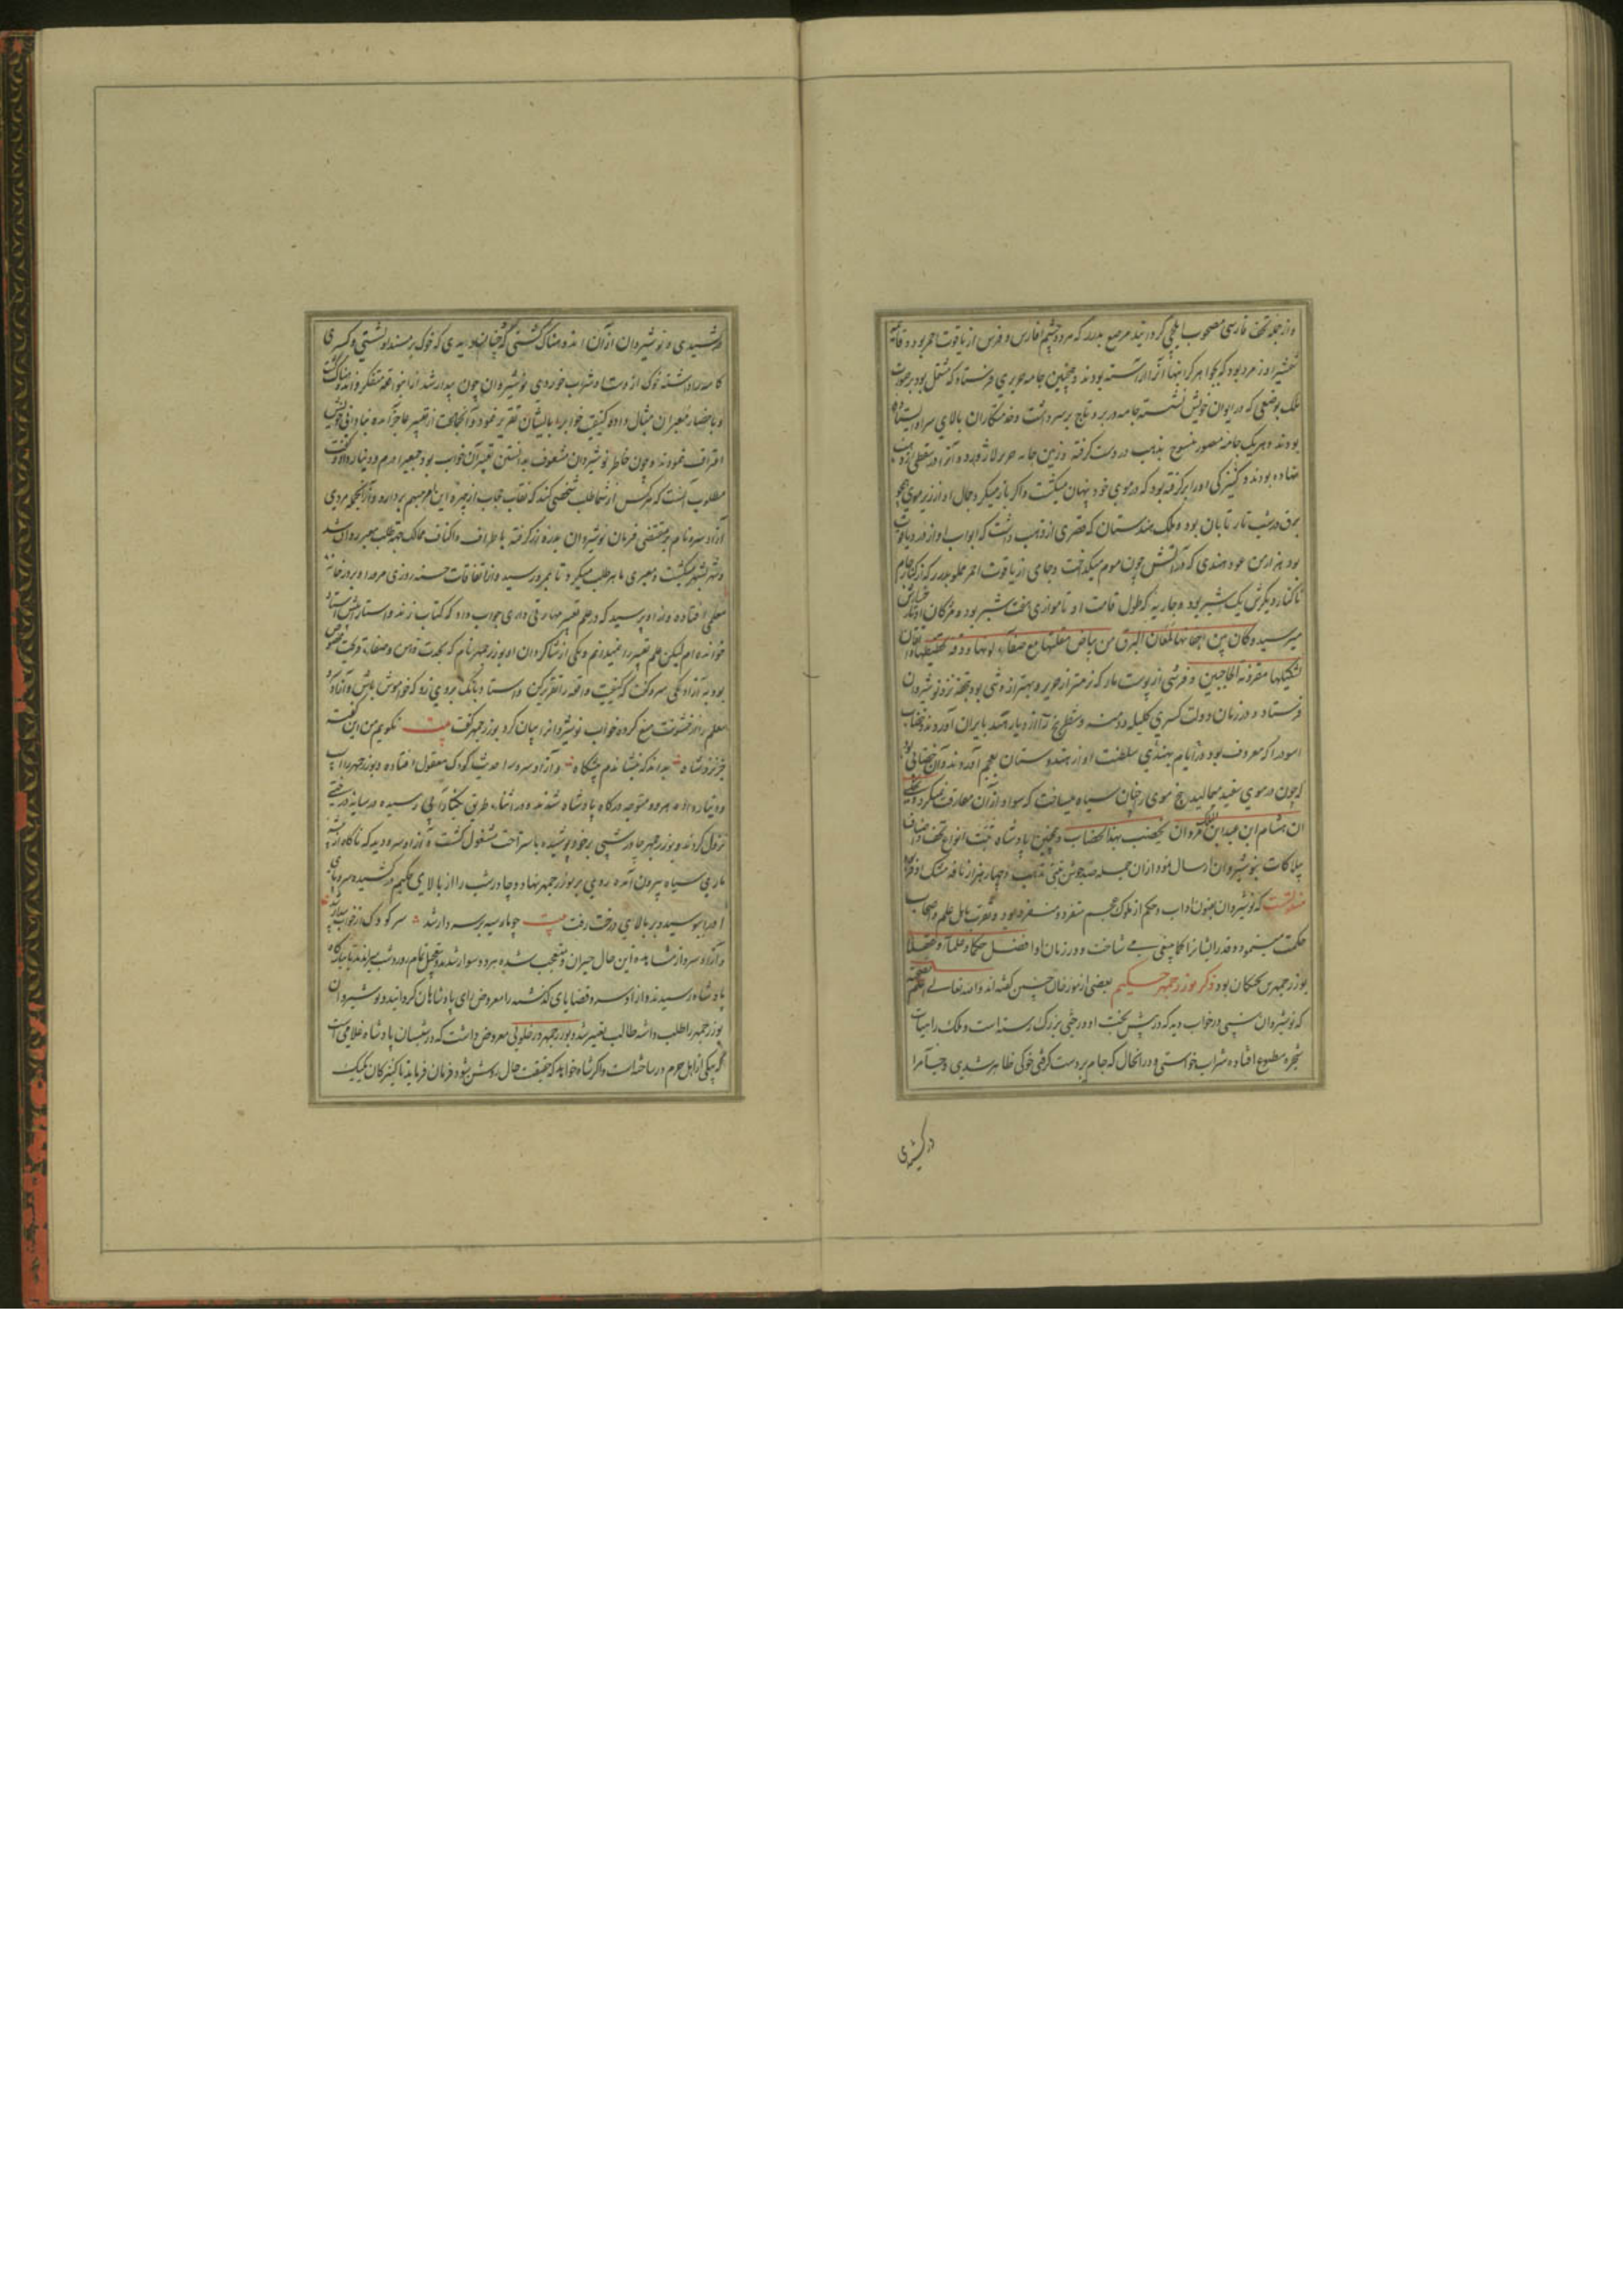 و از جمله تحف فارسی مصحوب ایلچی گردانید مرصع بدرر که هر دو چشم فارس و فرس از یاقوت احمر بود و قائمه
شمشیر او زمرد بود که بجواهر گرانبها آنرا آراسته بودند و همچنین جامه حریری فرستاد که مشتمل بود بر صورت
ملک بوضعی که در ایوان خویش نشسته جامه در بر و تاج بر سر داشت و خدمتکاران بالای سر او ایستاده
بودند و هر یک جامه مصور منسوج بذهب در دست گرفته و زمین جامه حریر لاژورد و آنرا در سفطی از ذهب
نهاده بودند و کنیزکی او را برگرفته بود که در موی خود پنهان میگشت و اگر باز میکرد جمال او از زیر موی همچو
برق در شب تار تابان بود و ملک هندستان که قصری از ذهب داشت که ابواب او از در و یاقوت
بود هزار من عود هندی که در آتش چون موم میگداخت و جامی از یاقوت احمر مملو بدرر که از کنار جام
تا کنار دیگرش یک شبر بود و جاریه که طول قامت او تا موازی هفت شبر بود و مژگان او تا رخساره اش
میرسید و کان بین اجفانها لمعان البرق من بیاض مقلتها مع صفاء لونها و دقه تخطیطها و اتقان
تشکیلها مقرونه الحاجبین و فرشی از پوست مار که نرمتر از حریر و بهتر از وشی بود تحفه نزد نوشیروان
فرستاد و در زمان دولت کسری کلیله و دمنه و شطرنج را از دیار هند بایران آوردند و خضاب
اسود را که معروف بود در ایام بهندی سلطنت او از هندوستان بعجم آوردند و آن خضابی بود
که چون در موی سفید میمالیدند بیخ موی را چنان سیاه میساخت که سواد از آن مفارقت نمیکرد و حکی
ان هشام ابن عبد الملک مروان یخضب بهذا الخضاب و همچنین پادشاه تبت انواع تحف و اصناف
بیلاکات بنوشیروان ارسال نمود از آن جمله صد جوشن تبتی مذهب و چهار هزار نافه مشک اذفر
منقولست که نوشیروان بفنون آداب و حکم از ملوک عجم متفرد و مستفرد بود و تقرب باهل علم و اصحاب
حکمت مینمود و قدر ایشانرا کما ینبغی می شناخت و در زمان او افضل حکما و علما و عقلا
بوزرجمهر بن بختکان بود ذکر بوزرجمهر حکیم بعضی از مورخان چنین گفته اند والله تعالی اعلم
که نوشیروان شبی در خواب دید که در پیش تخت او درختی بزرگ رسته است و ملک را بیات
شجره مطبوع افتاده شراب خواستی و در آنحال که جام بر دست گرفتی خوکی ظاهر شدی و جام را
در کشیدی
در کشیدی و نوشیروان از آن اندوهناک گشتی که چنان دیدی که خوک بر مسند او نشستی و کسری
کاسه را داشته خوک از دست او شراب خوردی نوشیروان چون بیدار شد از این واقعه متفکر و اندوهناک گشت
و باحضار معبران مثال داده کیفیت خواب را با ایشان تقریر نمود و آنجماعت از تعبیر عاجز آمده بنادانی خویش
اعتراف نمودند و چون خاطر نوشیروان مشعوف بدانستن تعبیر آن خواب بود جمعی را درم و دینار داد و گفت
مطلوب آنست که هر کس از شما طلب شخصی کند که نقاب حجاب از چهره این امر مبهم بردارد و از آنجمله مردی
آزاد سرو نام بمقتضی فرمان نوشیروان بدره زر گرفته باطراف و اکناف ممالک جهه طلب معبر روان شد
و شهر بشهر میگشت و معبری ماهر طلب میکرد تا بمرو رسید و از اتفاقات حسنه روزی مرور او بر در خانه
معلمی افتاده و از او پرسید که در علم تعبیر مهارتی داری جواب داد که کتاب زند و استا پیش استاد
خوانده ام لیکن علم تعبیر را نمیدانم و یکی از شاگردان او بوزرجمهر نام که بحدت ذهن و صفاء قریحت مخصوص
بود به آزاد سرو گفت که کیفیت واقعه را تقریر کن و استاد بانک بر وی زد که خاموش باش و آزاد سرو
معلم را از خشونت منع کرده خواب نوشیروانرا بیان کرد بوزرجمهر گفت بیت نگویم من این گفته
جز نزد شاه بدانگه که بنشاندم پیشگاه و آزاد سرو را حدیث کودک معقول افتاده و بوزرجمهر را اسب
و دینار داد هر دو متوجه درگاه پادشاه شدند و در اثناء طریق بکنار آبی رسیده در سایه درختی
نزول کردند و بوزرجمهر چادر شبی بر خود پوشیده باستراحت مشغول گشت و آزاد سرو دید که ناگاه از بیشه
ماری سیاه بیرون آمده روی بر بوزرجمهر نهاد و چادر شب را از بالای حکیم در کشیده سر و پای
او را ببوسید و بر بالای درخت رفت بیت چو مار سیه بر سر دار شد سر کودک از خواب بیدار شد
و آزاد سرو از مشاهده این حال حیران و متعجب شده هر دو سوار شدند و بتعجیل تمام روز و شب میراندند تا بدرگاه
پادشاه رسیدند و آزاد سرو قضایای گذشته را معروض رای پادشاهان گردانید و نوشیروان
بوزرجمهر را طلب داشته طالب تعبیر شد و بوزرجمهر در خلوتی معروض داشت که در شبستان پادشاه غلامی است
که بیکی از اهل حرم در ساخته است و اگر شاه خواهد که حقیقت حال روشن شود فرمان فرماید تا کنیزکان یک یک